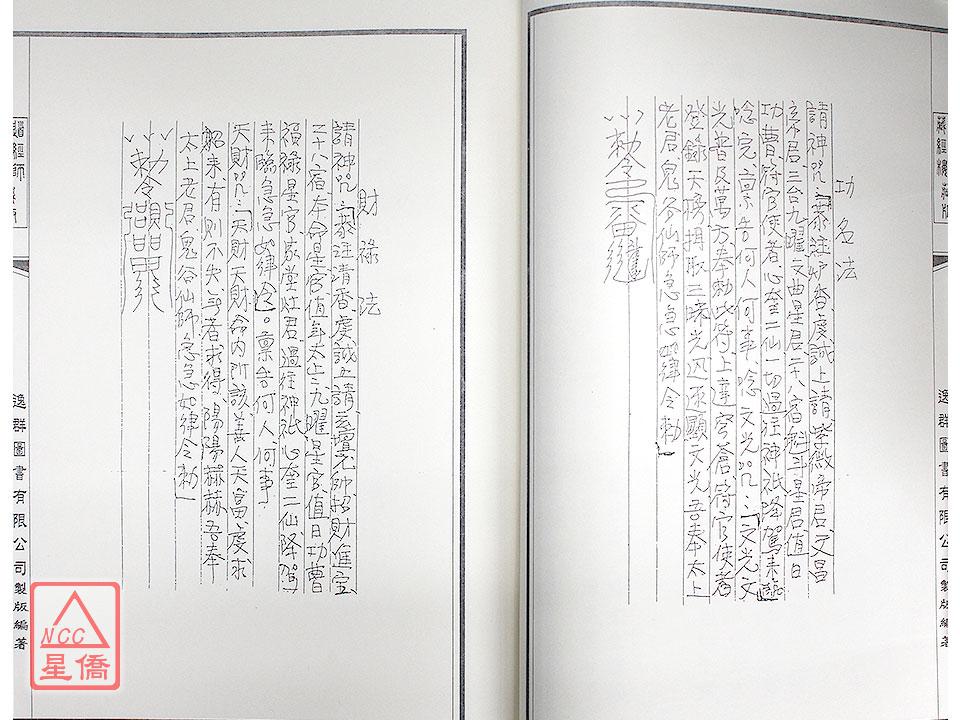 藏經樓藏版
逸群圖書有限公司製版編著
功名法
請神咒「焚註炉香虔誠上請紫微帝君文昌
帝君三台九曜文曲星君二十八宿魁斗星君值日
功曹符官使者心奎二仙一切過往神祇降駕來臨
唸完稟告何人何事唸文光咒「文光文
光普及萬方奉勅此符上達穹蒼符官使者
登錄天榜揖取三昧光迅速顯文光吾奉太上
老君鬼谷仙師急急如律令勅」
勅令
財祿法
請神咒「焚註清香虔誠上請玄壇元帥招財進寶
二十八宿本命星官值年太上二九曜星官值日功曹
福祿星官家堂灶君過往神祇心奎二仙降駕
來臨急急如律令。稟告何人何事
天財咒「天財天財命內所該善人天富虔求
船來有則不失者求得陽陽赫赫吾奉
太上老君鬼谷仙師急急如律令勅」
勅令
逸群圖書有限公司製版編著
NCC
星僑